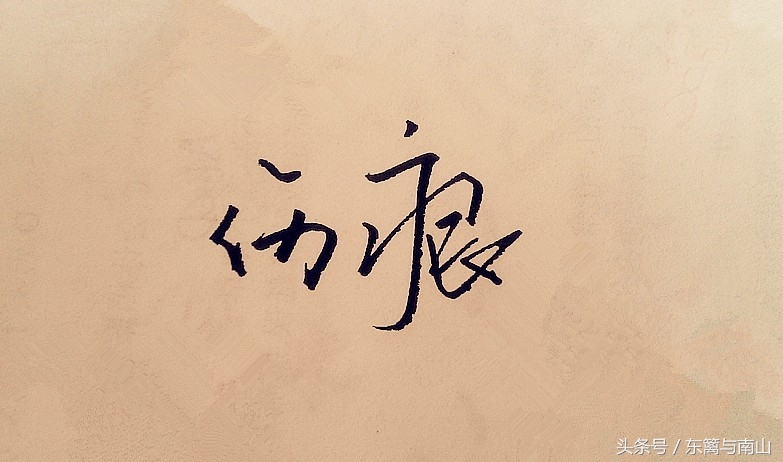 伤痕
头条号／东篱与南山